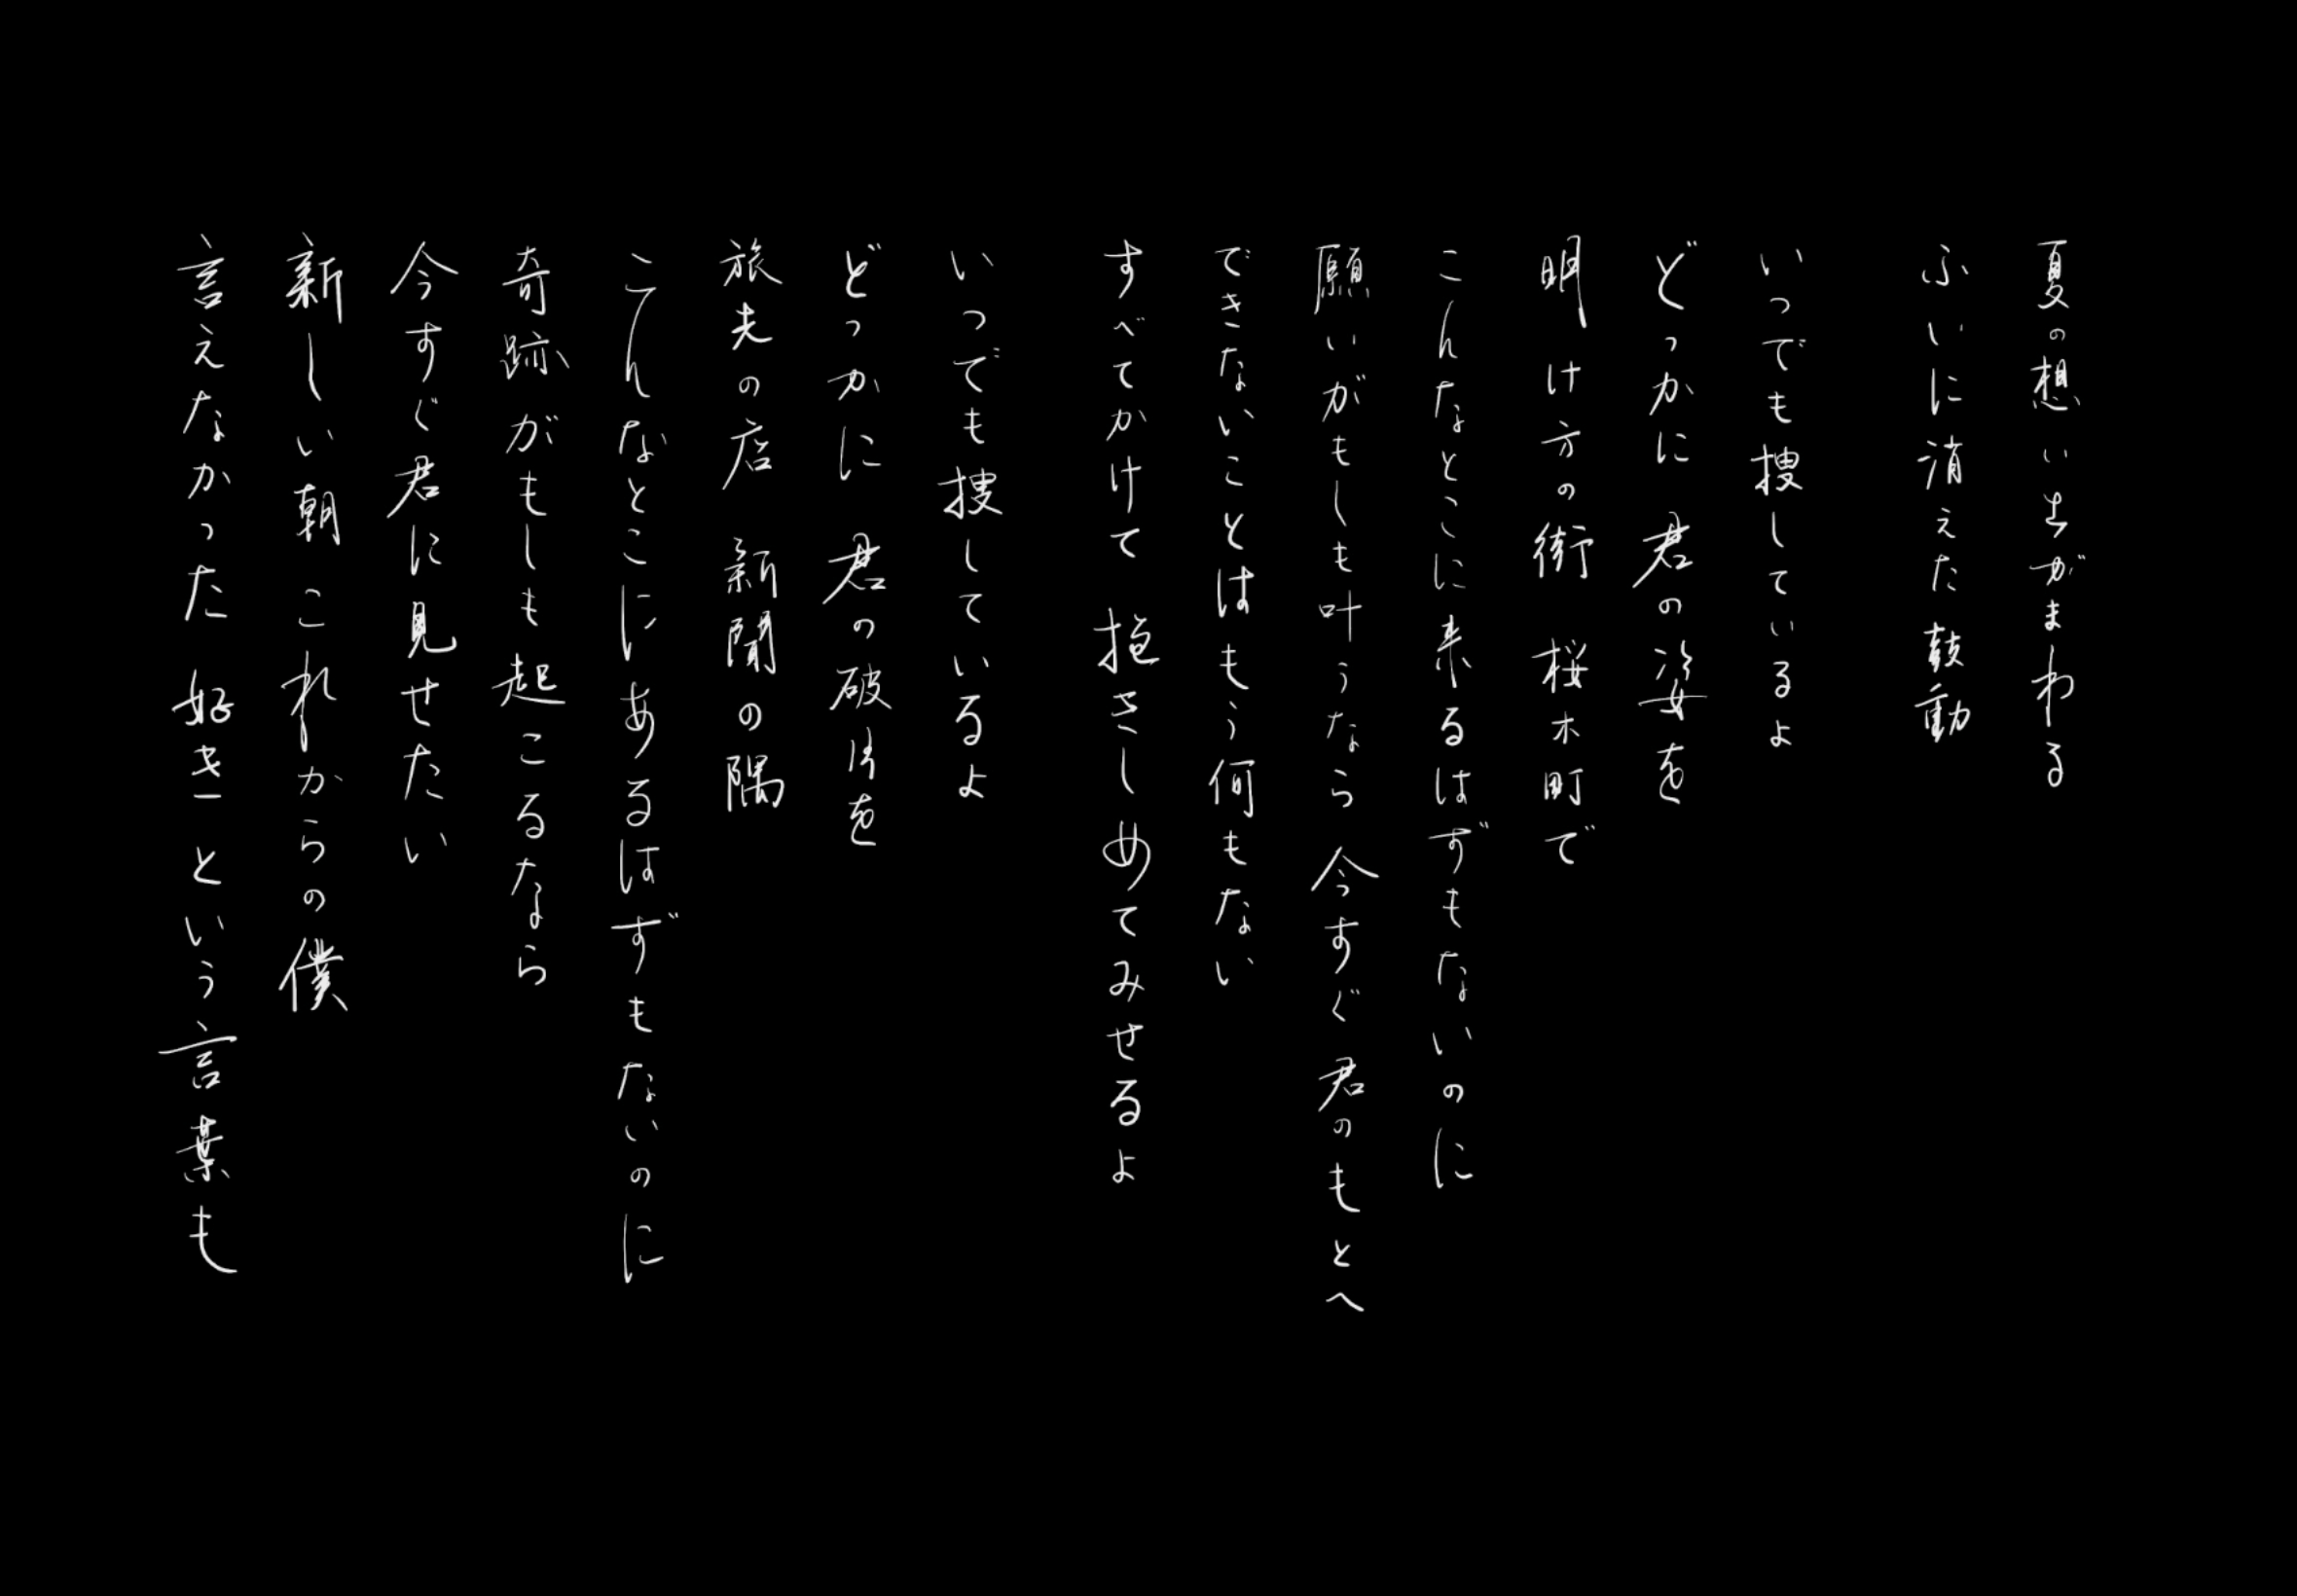 夏の想い出がまわる
ふいに消えた鼓動
いつでも捜しているよ
どっかに 君の姿を
明け方の街 桜木町で
こんなとこに来るはずもないのに
願いがもしも叶うなら 今すぐ 君のもとへ
できないことはもう何もない
すべてかけて 抱きしめてみせるよ
いつでも捜しているよ
どっかに 君の破片を
旅先の店 新聞の隅
こんなとこにあるはずもないのに
奇跡がもしも起こるなら
今すぐ君に見せたい
新しい朝 これからの僕
言えなかった 好きという言葉も